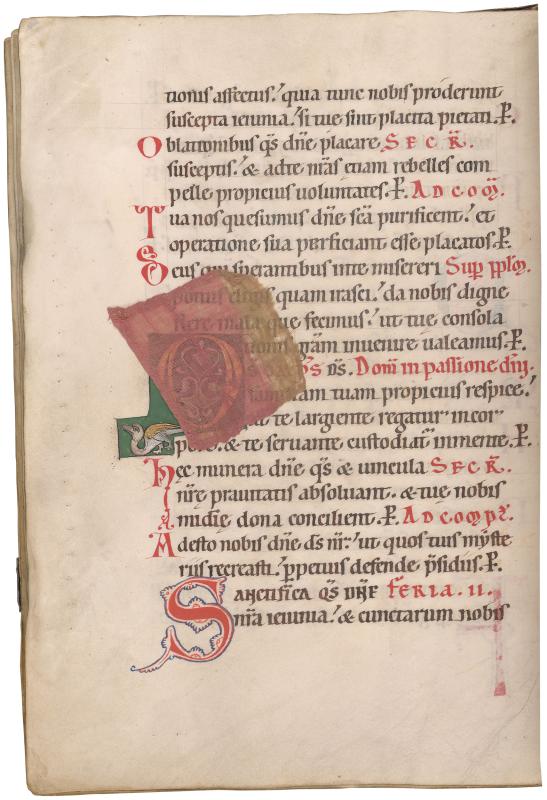 tionis affectus. quia tunc nobis proderunt
suscepta ieiunia. si tue sint placita pietati. P.
Oblationibus qs dne placare SECR.
susceptis. & ad te nras etiam rebelles com
pelle propicius uoluntates. P. AD COM.
Tua nos quesumus dne sca purificent. et
operatione sua perficiant esse placatos. P.
Deus qui sperantibus in te misereri Sup pplm.
potius eligis quam irasci. da nobis digne
flere mala que fecimus. ut tue consola
tionis gram inuenire ualeamus. P.
qs ds. Dom in passione dni.
familiam tuam propicius respice.
ut te largiente regatur in cor
pore. & te seruante custodiat in mente. P.
Hec munera dne qs & uincula SECR.
nre prauitatis absoluant. & tue nobis
midie dona concilient. P. AD COMPL.
Adesto nobis dne ds nr. ut quos tuis myste
riis recreasti. perpetuis defende psidiis. P.
SANCTIFICA QS DNE FERIA. II.
nra ieiunia. & cunctarum nobis